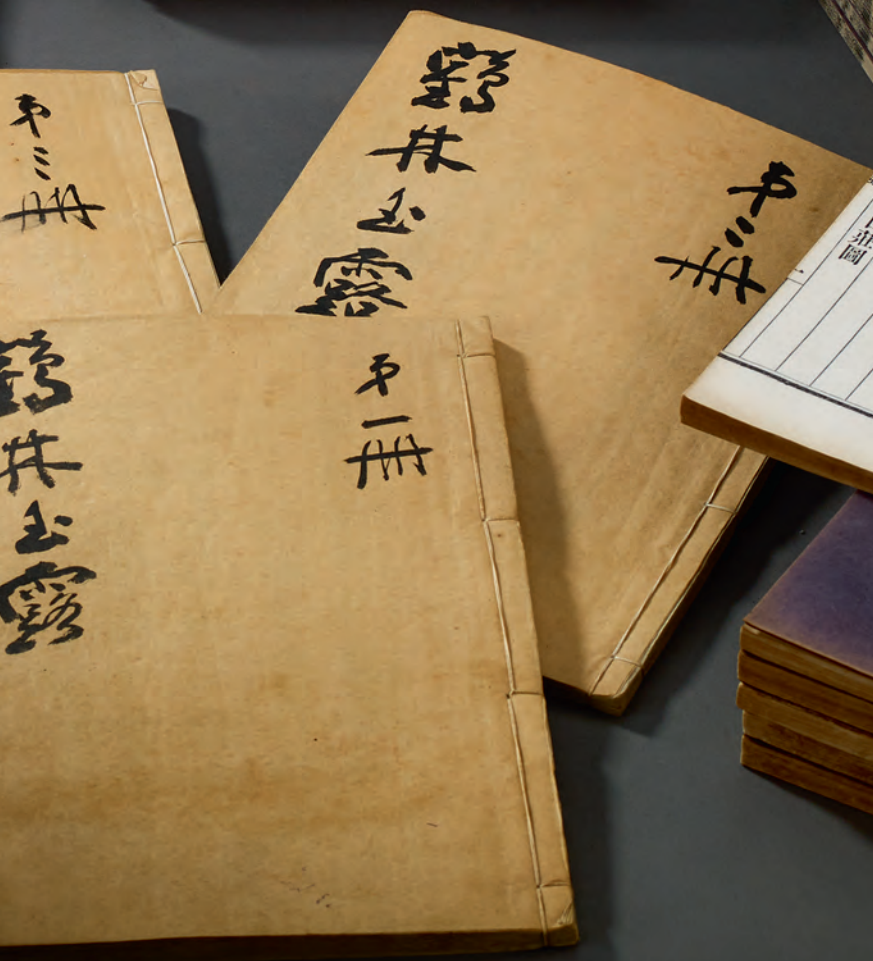 第三冊
鶴林玉露
第二冊
鶴林玉露
第一冊
莊圖